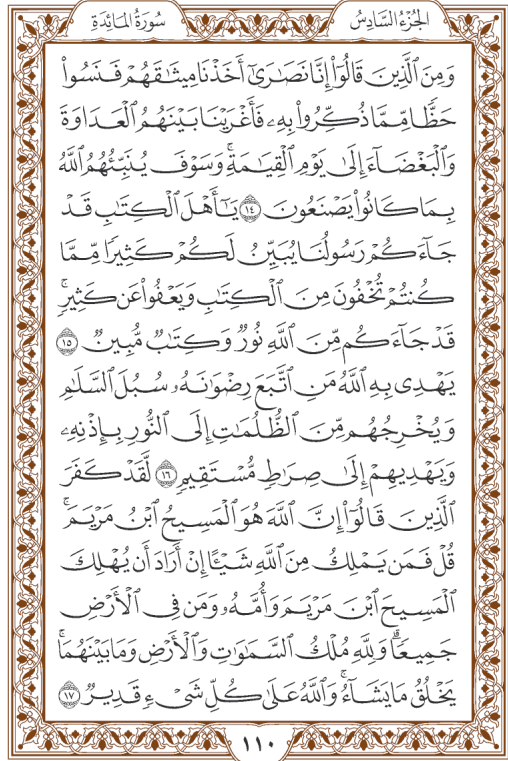 الجُزْءُ السَّادِسُ
سُورَةُ المَائِدَةِ
وَمِنَ ٱلَّذِينَ قَالُوٓا۟ إِنَّا نَصَٰرَىٰٓ أَخَذْنَا مِيثَٰقَهُمْ فَنَسُوا۟
حَظًّا مِّمَّا ذُكِّرُوا۟ بِهِۦ فَأَغْرَيْنَا بَيْنَهُمُ ٱلْعَدَاوَةَ
وَٱلْبَغْضَآءَ إِلَىٰ يَوْمِ ٱلْقِيَٰمَةِۚ وَسَوْفَ يُنَبِّئُهُمُ ٱللَّهُ
بِمَا كَانُوا۟ يَصْنَعُونَ ١٤ يَٰٓأَهْلَ ٱلْكِتَٰبِ قَدْ
جَآءَكُمْ رَسُولُنَا يُبَيِّنُ لَكُمْ كَثِيرًا مِّمَّا
كُنتُمْ تُخْفُونَ مِنَ ٱلْكِتَٰبِ وَيَعْفُوا۟ عَن كَثِيرٍۚ
قَدْ جَآءَكُم مِّنَ ٱللَّهِ نُورٌ وَكِتَٰبٌ مُّبِينٌ ١٥
يَهْدِى بِهِ ٱللَّهُ مَنِ ٱتَّبَعَ رِضْوَٰنَهُۥ سُبُلَ ٱلسَّلَٰمِ
وَيُخْرِجُهُم مِّنَ ٱلظُّلُمَٰتِ إِلَى ٱلنُّورِ بِإِذْنِهِۦ
وَيَهْدِيهِمْ إِلَىٰ صِرَٰطٍ مُّسْتَقِيمٍ ١٦ لَّقَدْ كَفَرَ
ٱلَّذِينَ قَالُوٓا۟ إِنَّ ٱللَّهَ هُوَ ٱلْمَسِيحُ ٱبْنُ مَرْيَمَۚ
قُلْ فَمَن يَمْلِكُ مِنَ ٱللَّهِ شَيْـًٔا إِنْ أَرَادَ أَن يُهْلِكَ
ٱلْمَسِيحَ ٱبْنَ مَرْيَمَ وَأُمَّهُۥ وَمَن فِى ٱلْأَرْضِ
جَمِيعًاۗ وَلِلَّهِ مُلْكُ ٱلسَّمَٰوَٰتِ وَٱلْأَرْضِ وَمَا بَيْنَهُمَاۚ
يَخْلُقُ مَا يَشَآءُۚ وَٱللَّهُ عَلَىٰ كُلِّ شَىْءٍ قَدِيرٌ ١٧
١١٠